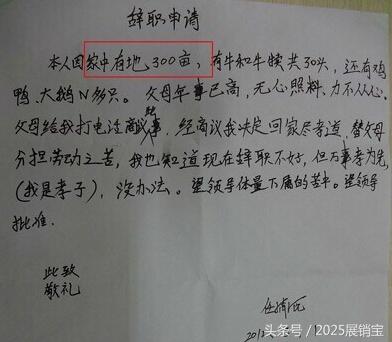 辞职申请
本人因家中有地300亩，有牛和牛犊共30头，还有鸡
鸭、大鹅N多只。父母年事已高，无心照料，力不从心。
父母给我打电话商议此事，经商议我决定回家尽孝道，替父母
分担劳动之苦，我也知道现在辞职不好，但万事孝为先
(我是孝子)，没办法。望领导体量下属的苦中。望领导
批准。
此致
敬礼
头条号 / 2025展销宝